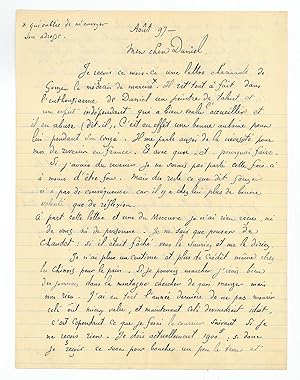 * qui oublie de m'envoyer
son adresse.
Août 97 —
Mon cher Daniel
Je reçois ce mois-ci une lettre charmante de
le médecin de marine. Il est tout à fait dans
l'enthousiasme de Daniel un peintre de talent et
un esprit indépendant qui a bien voulu accueillir et
il en abuse (dit-il). C'est en effet une bonne aubaine pour
lui pendant son congé. Il me parle aussi de la nécessité pour
moi de revenir en France. Et avec quoi et pourquoi faire.
Si j'avais du
à moins d'être fou. Mais du reste ce que dit
n'a pas de conséquence car il y a chez lui plus de bonne
volonté que de réflexion.
A part cette lettre et une du Mercure je n'ai rien reçu, ni
de vous ni de personne. Je ne sais que penser de
Chaudet: si il était fâché vous le sauriez et me le diriez.
Je n'ai plus un centime et plus de crédit même chez
le Chinois pour le pain. Si je pouvais marcher j'irais bien
des journées dans la montagne chercher de quoi manger mais
non rien. J'ai eu tort l'année dernière de ne pas mourir
cela eut mieux valu, et maintenant cela deviendrait idiot.
c'est cependant ce que je ferai le courrier suivant si je
ne reçois rien. Je dois actuellement
je reçois ce sera pour boucher un peu le trou et